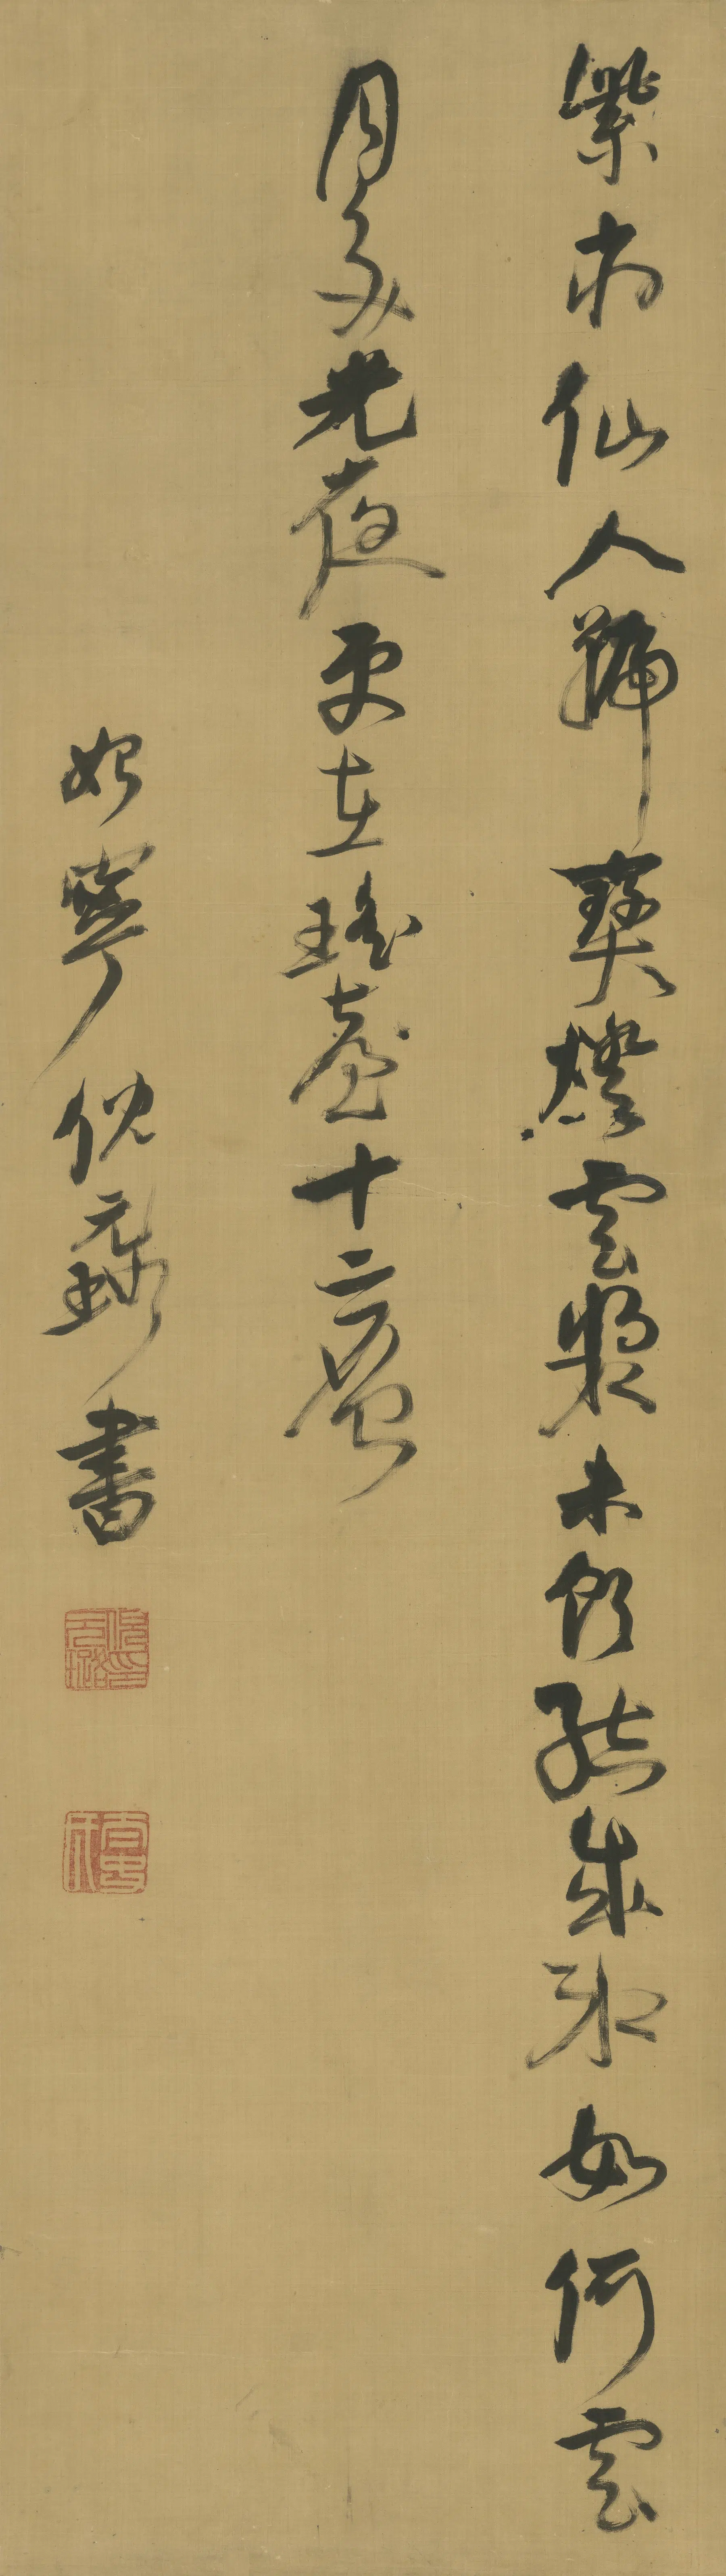 紫府仙人號寶燈雲漿未飲結成冰如何雪
月交光夜更在瑤臺十二層
始寧倪元璐書